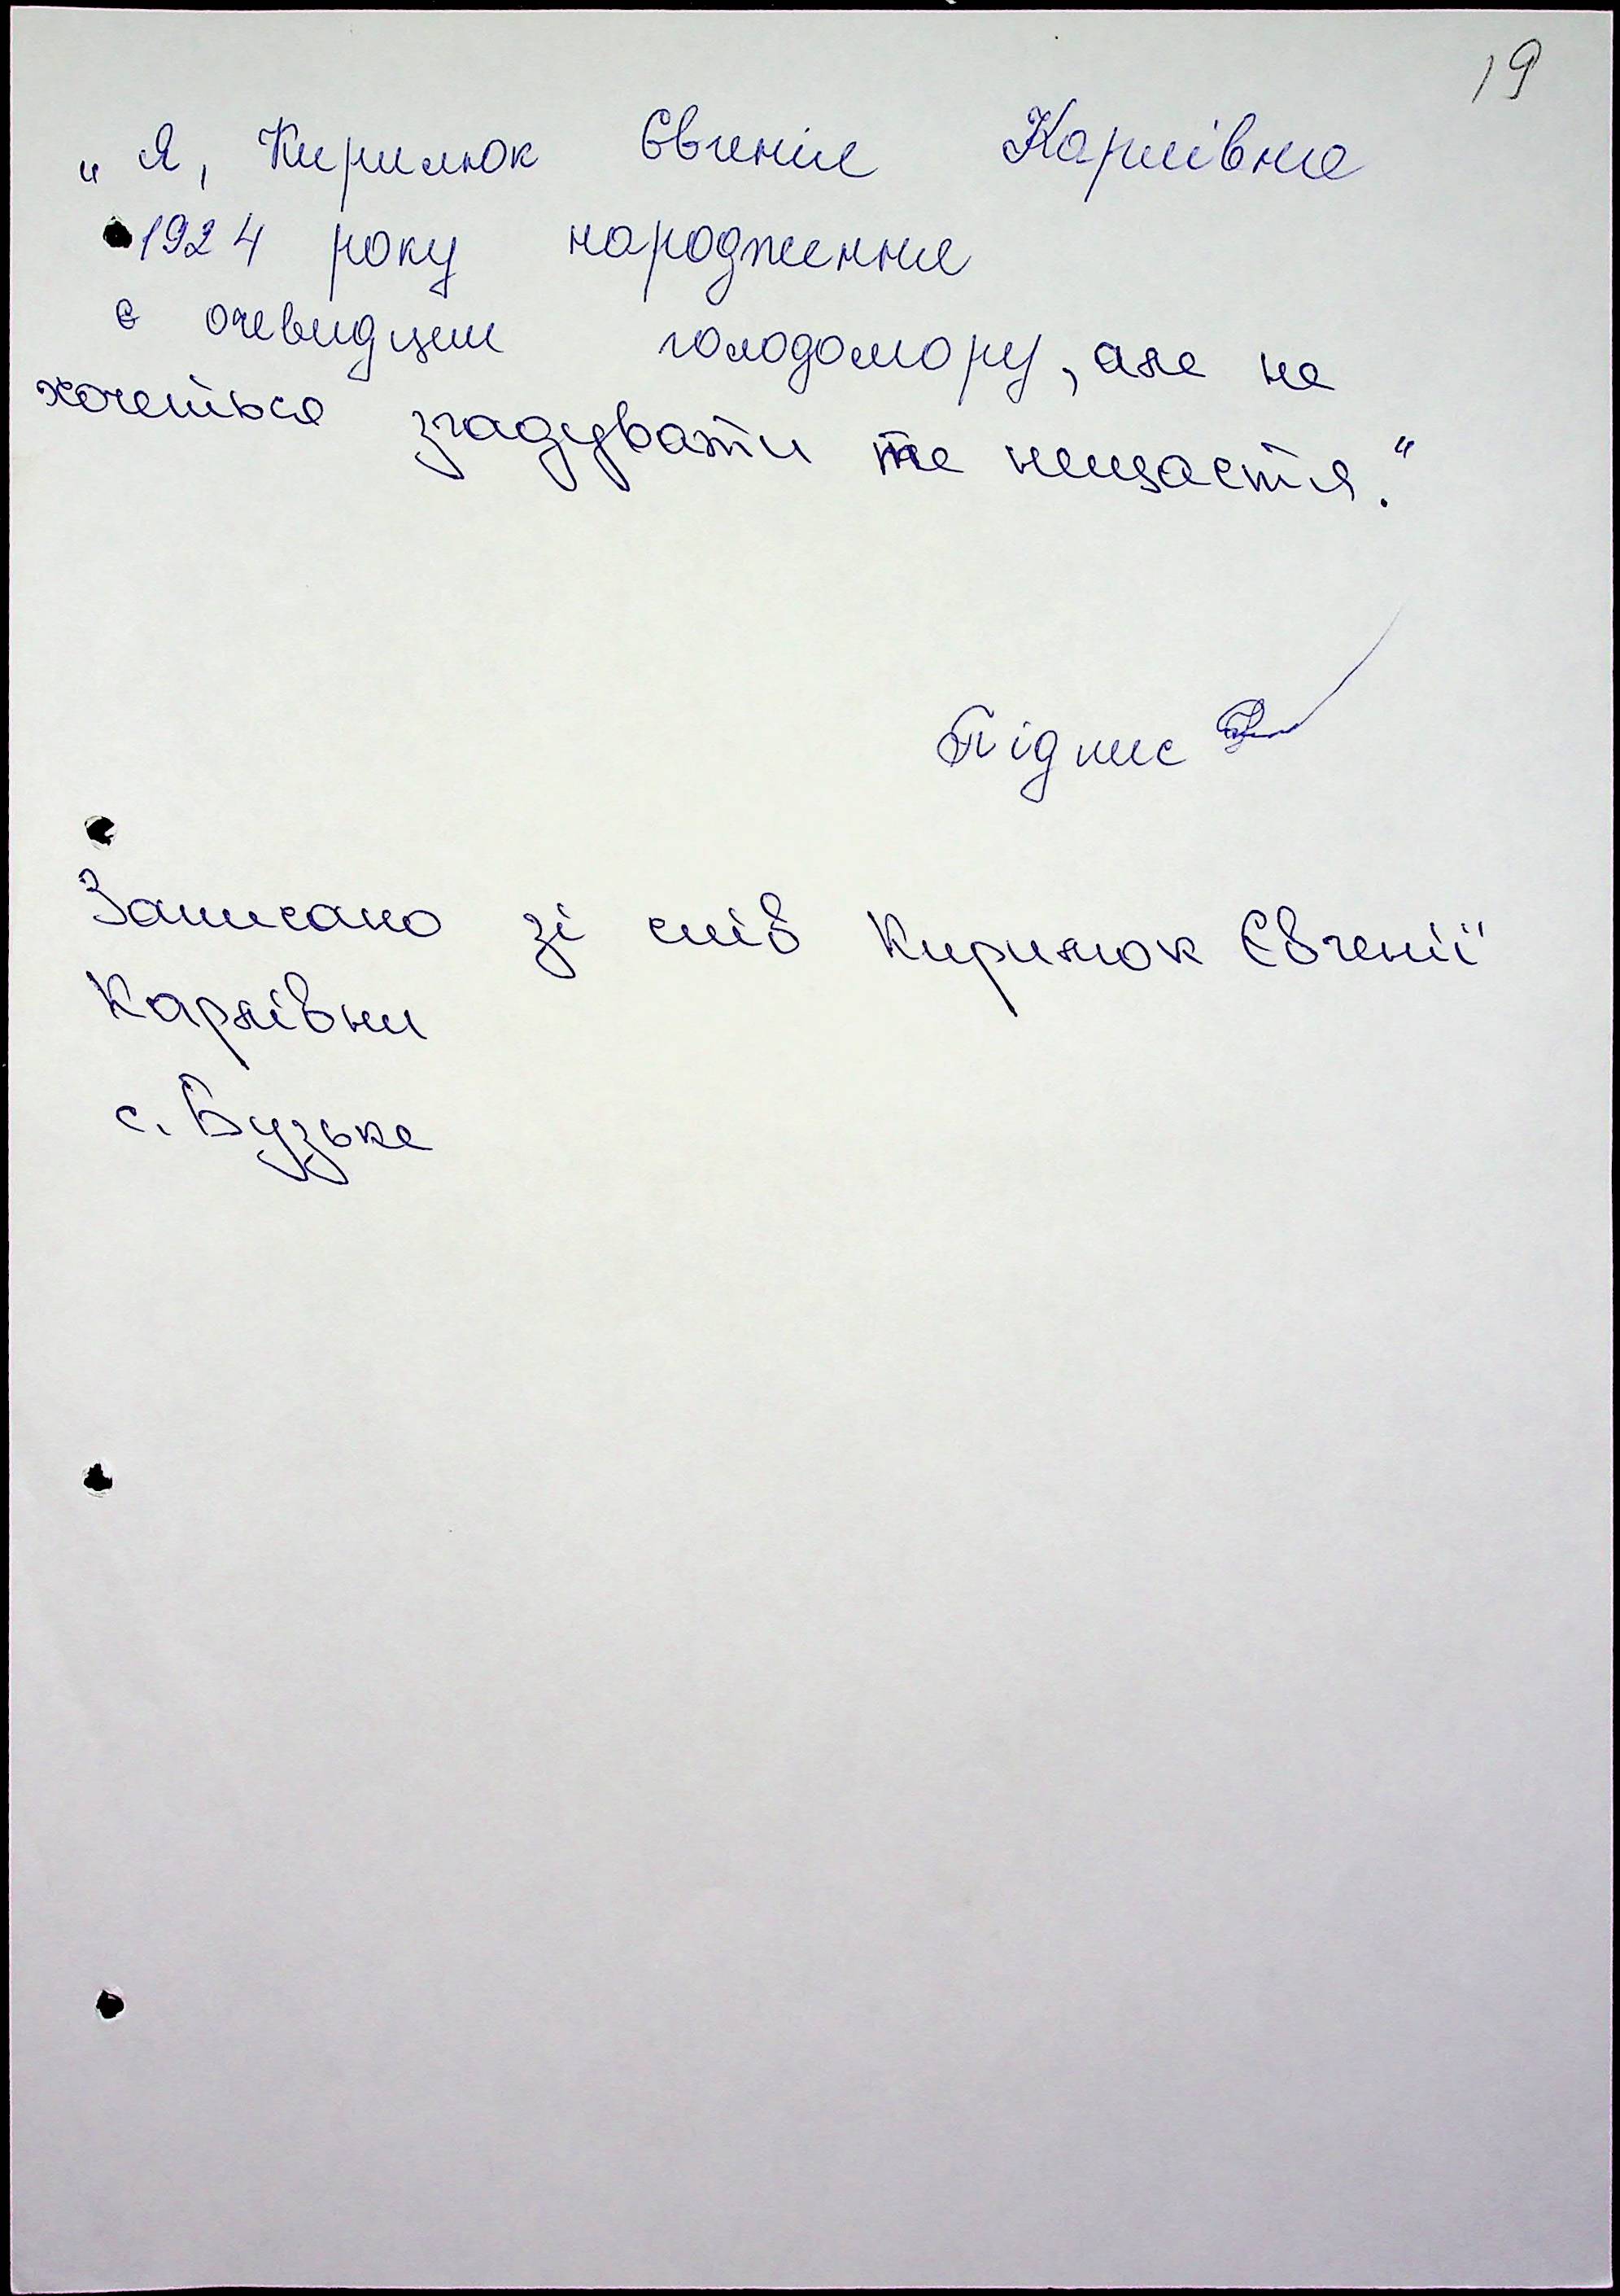 19
„Я, Кирилюк Євгенія Карлівна
1924 року народження
є очевидцем голодомору, але не
хочеться згадувати те нещастя."
Підпис
Записано зі слів Кирилюк Євгенії
Карлівни
с. Бузьке